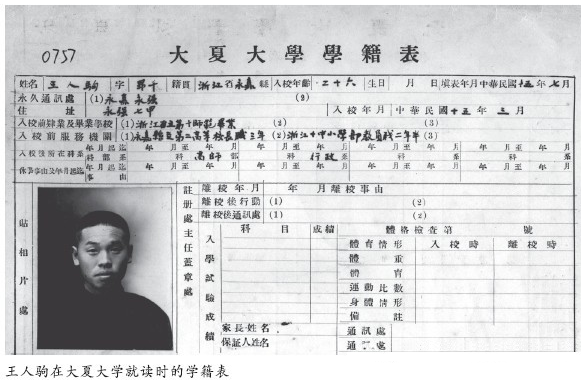 0757
大夏大學學籍表
姓名 王人駒 字 昂千 籍貫 浙江省永嘉縣 入校年齡 二十六 生日 月 日 填表年月 中華民國十五年七月
永久通訊處 (1) 永嘉永强 (2)
住址 永强七甲 入校年月 中華民國十五年三月
入校前肄業及畢業學校 (1) 浙江省立第十師範畢業 (2) (3)
入校前服務機關 (1) 永嘉縣立第二高等校長職三年 (2) 浙江十中小學部教員職二年半 (3)
年月起迄 年 月至 年 月 年 月至 年 月 年 月至 年 月
入校後所在科系 科部系 科 高師部 系 科 行政系 科 系
年月起迄 年 月至 年 月 年 月至 年 月 年 月至 年 月
休學事由及年月起迄 事由
貼相片處
註册處主任蓋章處
離校年月 年 月 離校事由
離校後行動 (1) (2)
離校後通訊處 (1) (2)
入學試驗成績
科目 成績
體格檢查第 號
體育情形 入校時 離校時
體重
體育
運動比數
身體情形
備註
家長姓名 通訊處
保証人姓名 通訊處
王人驹在大夏大学就读时的学籍表